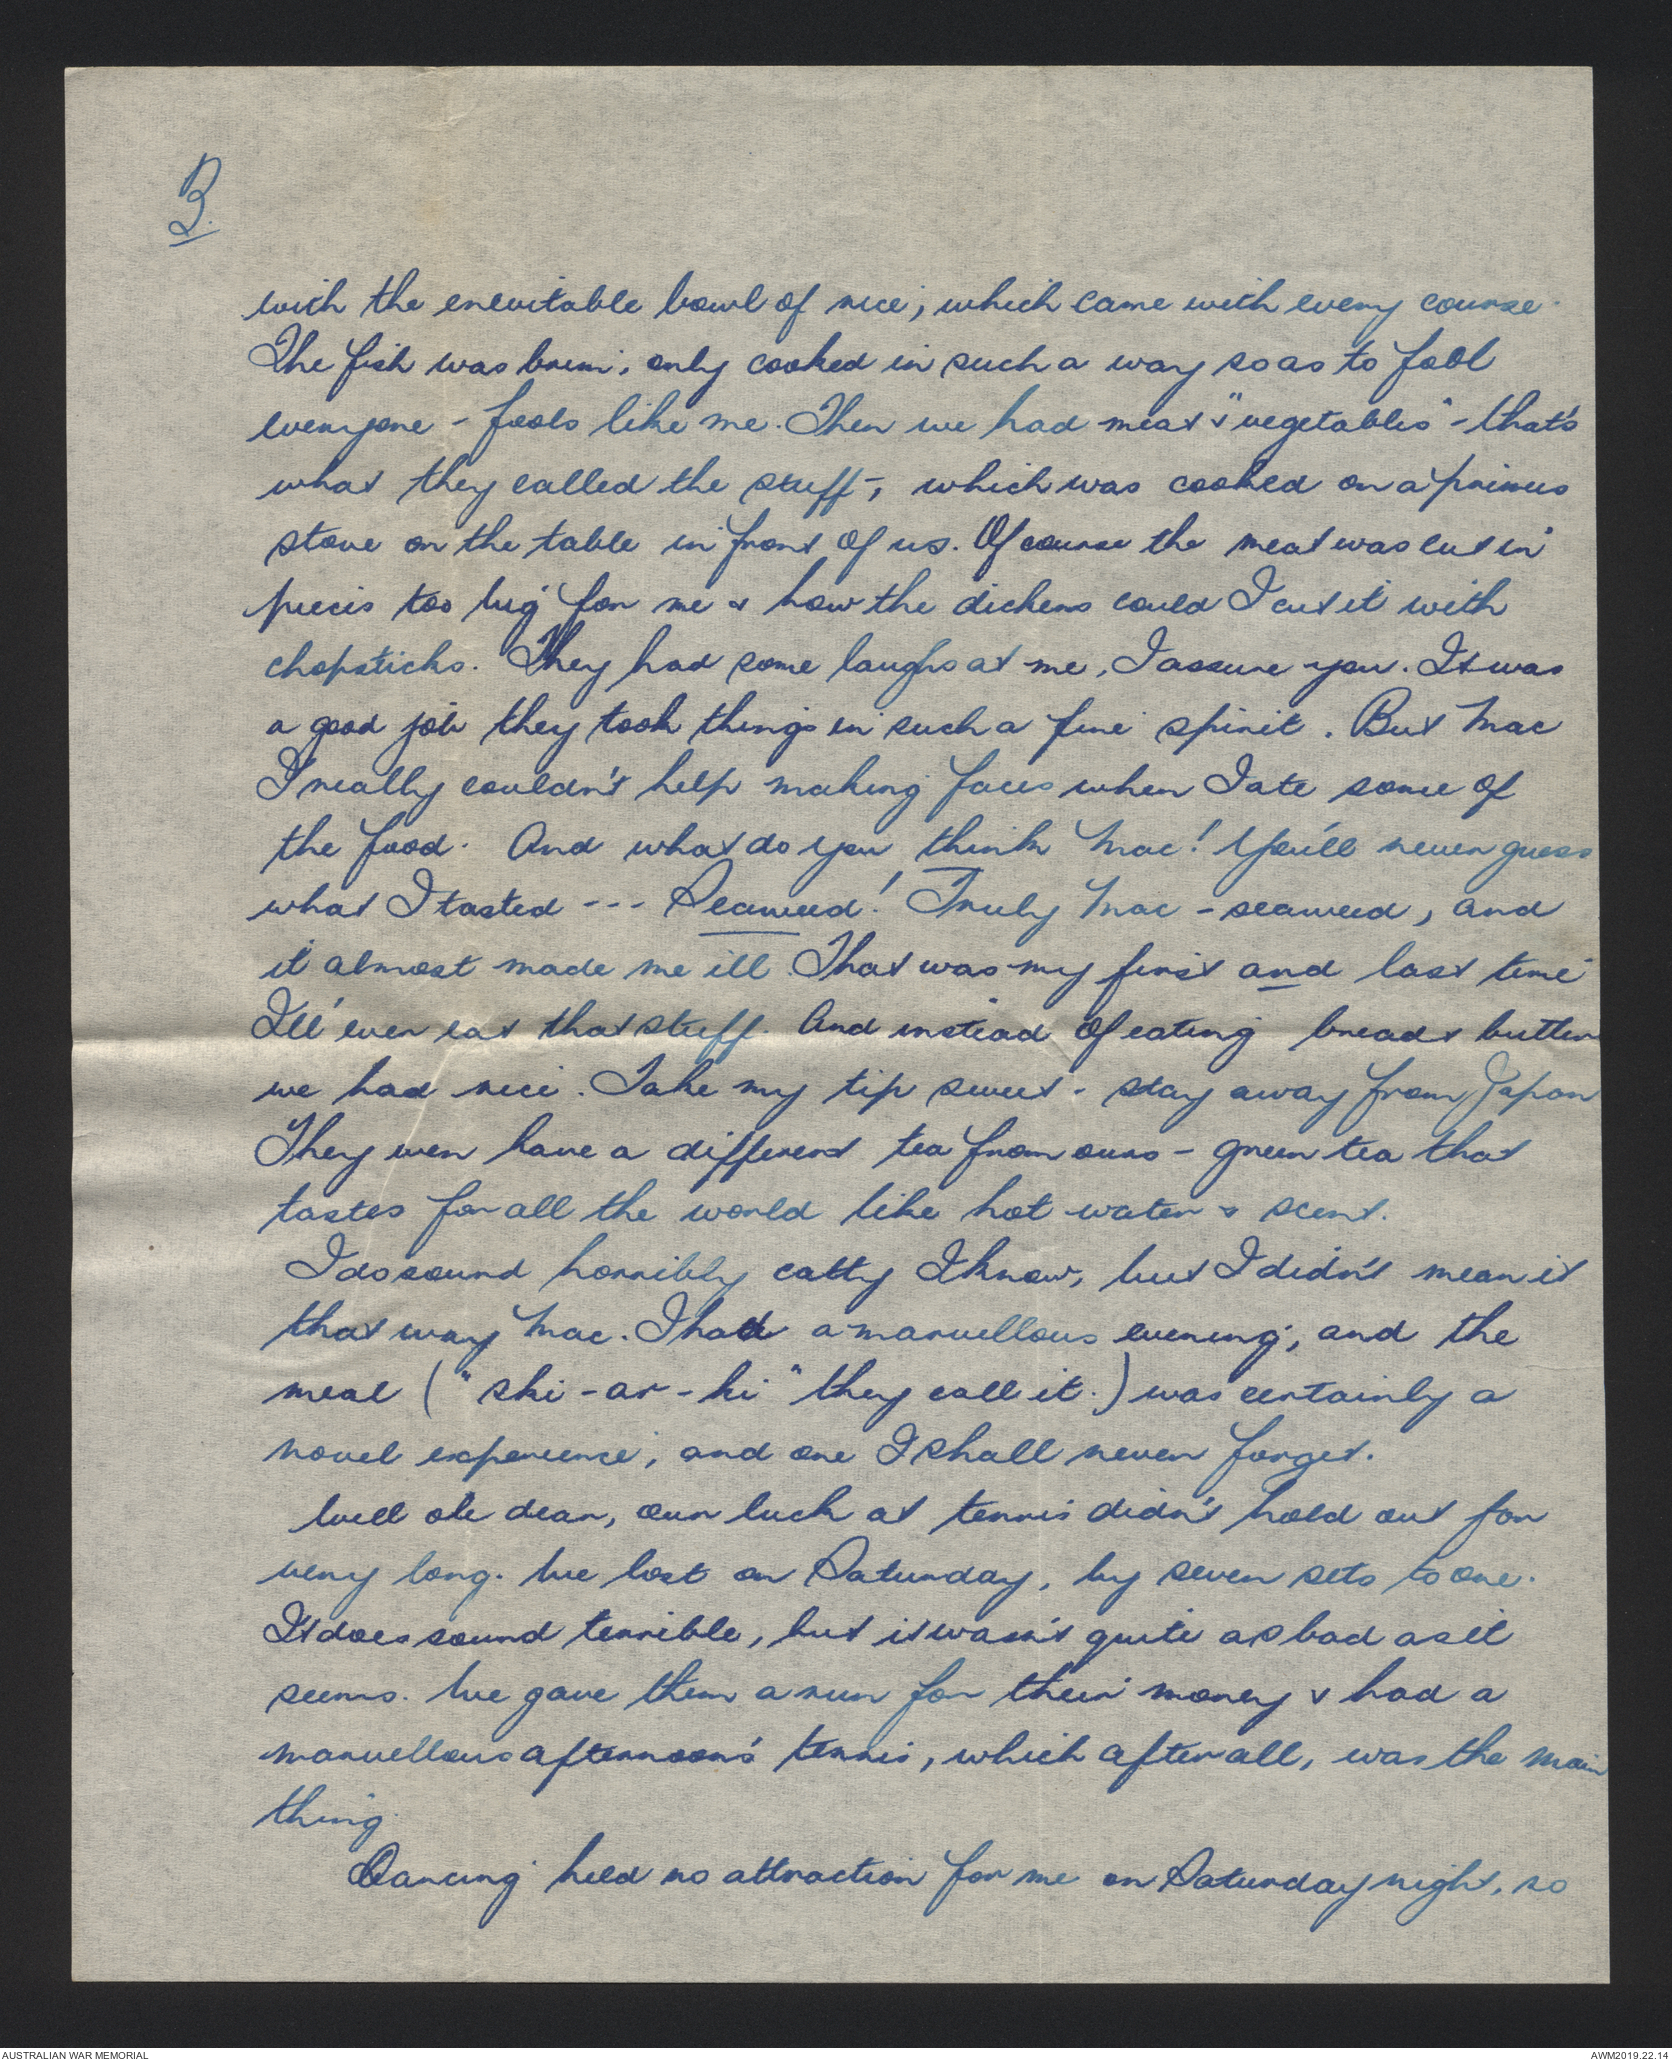 3.
with the inevitable bowl of rice, which came with every course.
The fish was brim, only cooked in such a way so as to fool
everyone - fools like me. Then we had meat & "vegetables" - that's
what they called the stuff -, which was cooked on a primus
stove on the table in front of us. Of course the meat was cut in
pieces too big for me & how the dickens could I cut it with
chopsticks. They had some laughs at me, I assure you. It was
a good job they took things in such a fine spirit. But Mac
I really couldn't help making faces when I ate some of
the food. And what do you think Mac! You'll never guess
what I tasted --- Seaweed! Truly Mac - seaweed, and
it almost made me ill. That was my first and last time
I'll ever eat that stuff. And instead of eating bread & butter
we had rice. Take my tip sweet - stay away from Japan
They even have a different tea from ours - green tea that
tastes for all the world like hot water & scent.
I do sound horribly catty I know, but I didn't mean it
that way Mac. I had a marvellous evening, and the
meal ("ski-ar-ki" they call it.) was certainly a
novel experience, and one I shall never forget.
Well ole dear, our luck at tennis didn't hold out for
very long. We lost on Saturday, by seven sets to one.
It does sound terrible, but it wasn't quite as bad as it
seems. We gave them a run for their money & had a
marvellous afternoon's tennis, which after all, was the main
thing.
Dancing held no attraction for me on Saturday night, so
AUSTRALIAN WAR MEMORIAL
AWM2019.22.14